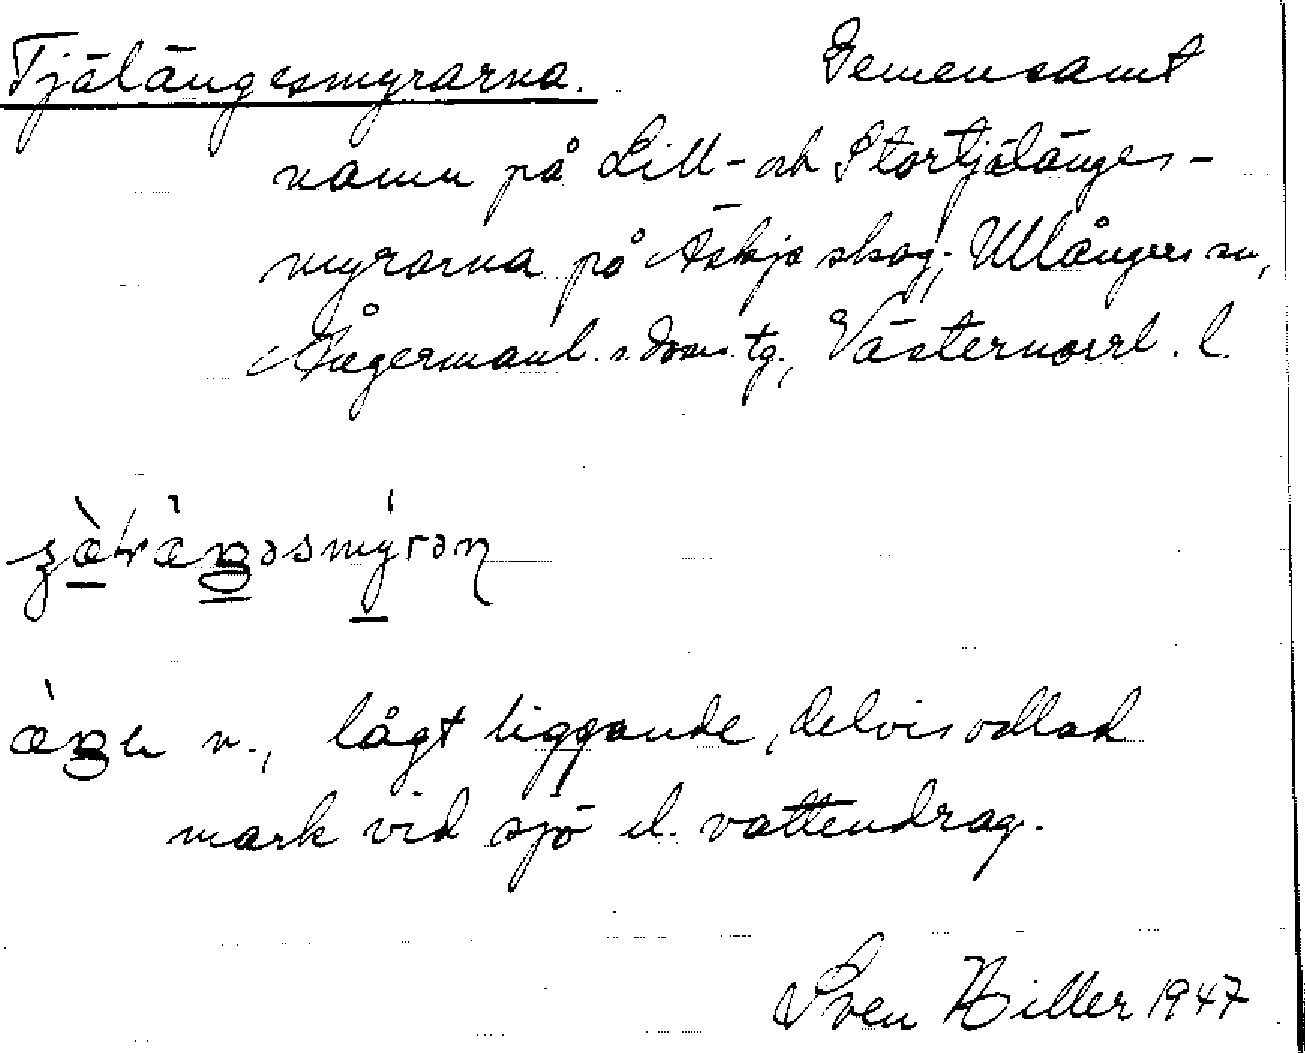 Tjälängesmyrarna. Gemensamt
namn på Lill- och Stortjälänges-
myrarna på Äskja skog, Ullångers sn,
Ångermanl. s. doms. tg., Västernorrl. l.
lågt liggande, delvis odlad
mark vid sjö el. vattendrag.
Sven Hiller 1947